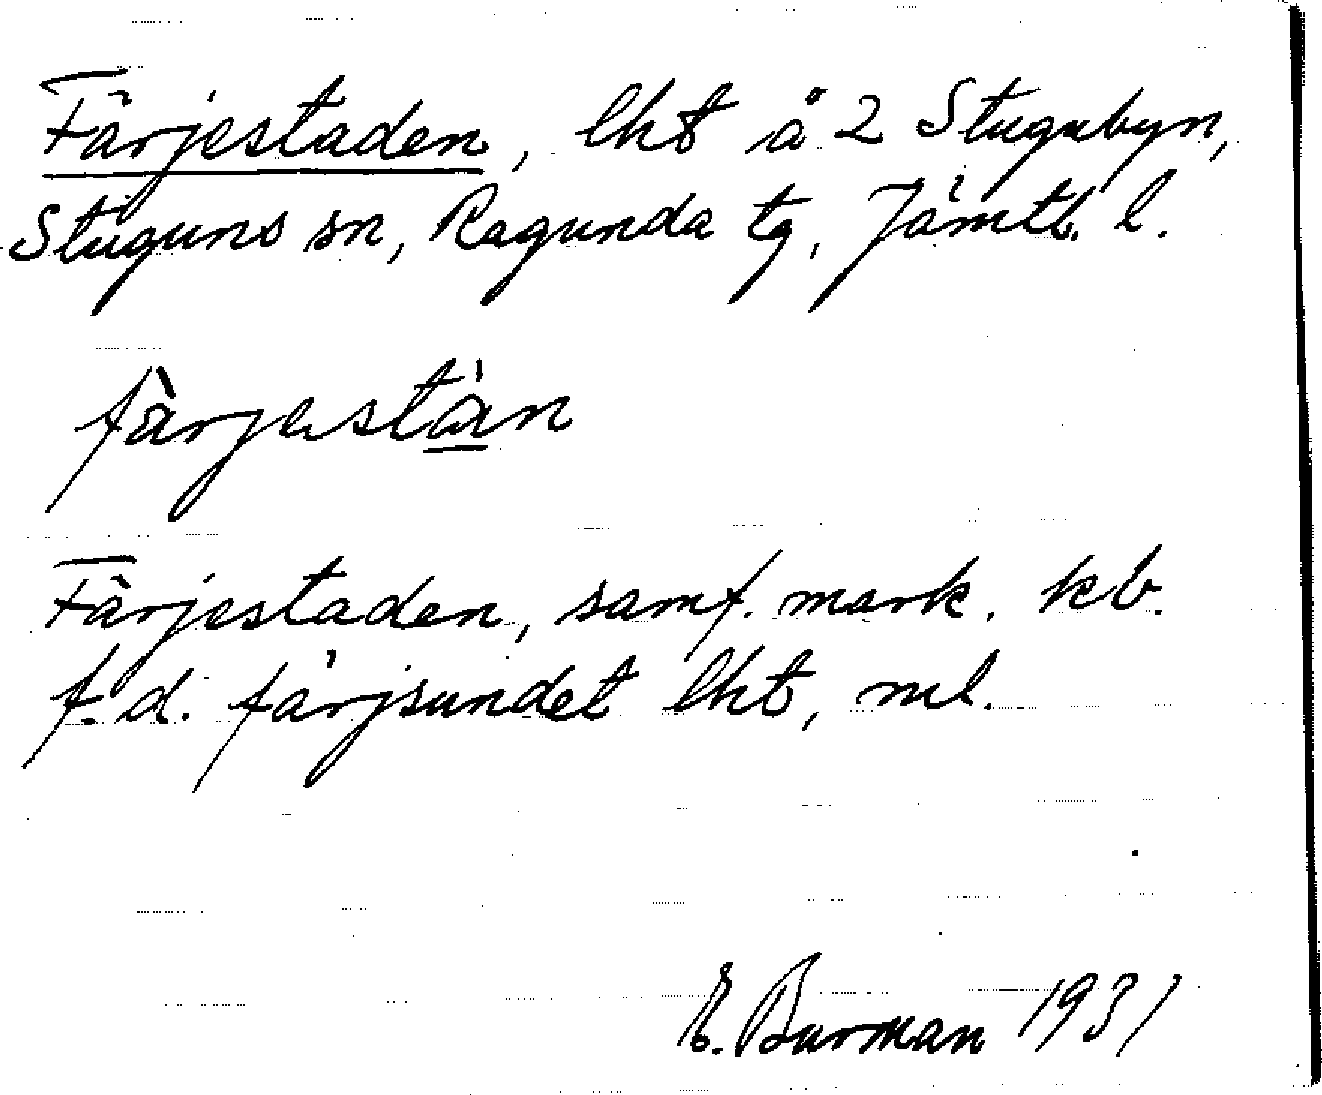 Färjestaden, lht å 2 Stugubyn,
Stuguns sn, Ragunda tg, Jämtl. l.
fàrjestá̲n
Färjestaden, samf. mark. kb.
f.d. färjsundet lht, ml.
E. Burman 1931